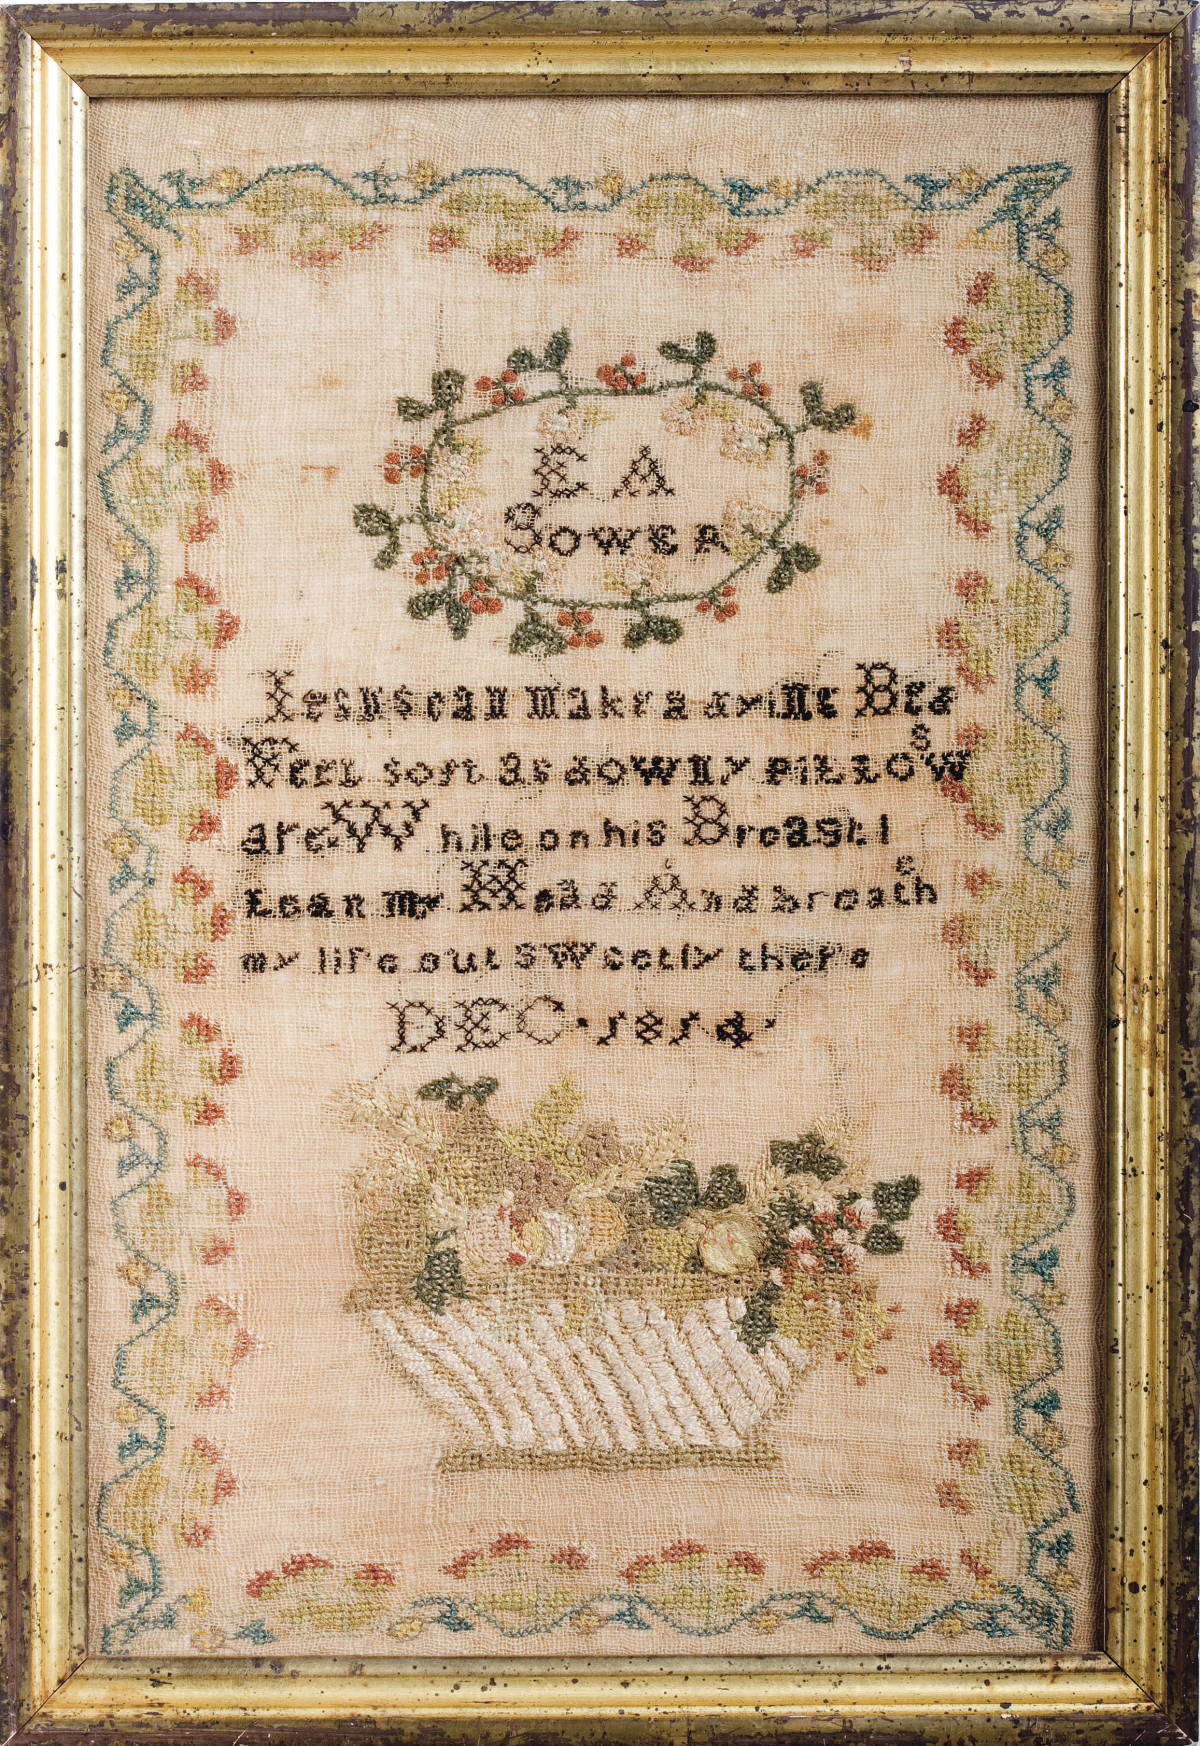 E A
Sower
Iesus can make a dying Bed
Feel soft as downy pillow s
are While on his Breast I
Lean my Head And breath e
my life out sweetly there
DEC · 1814 ·